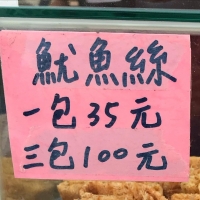 魷魚絲
一包35元
三包100元